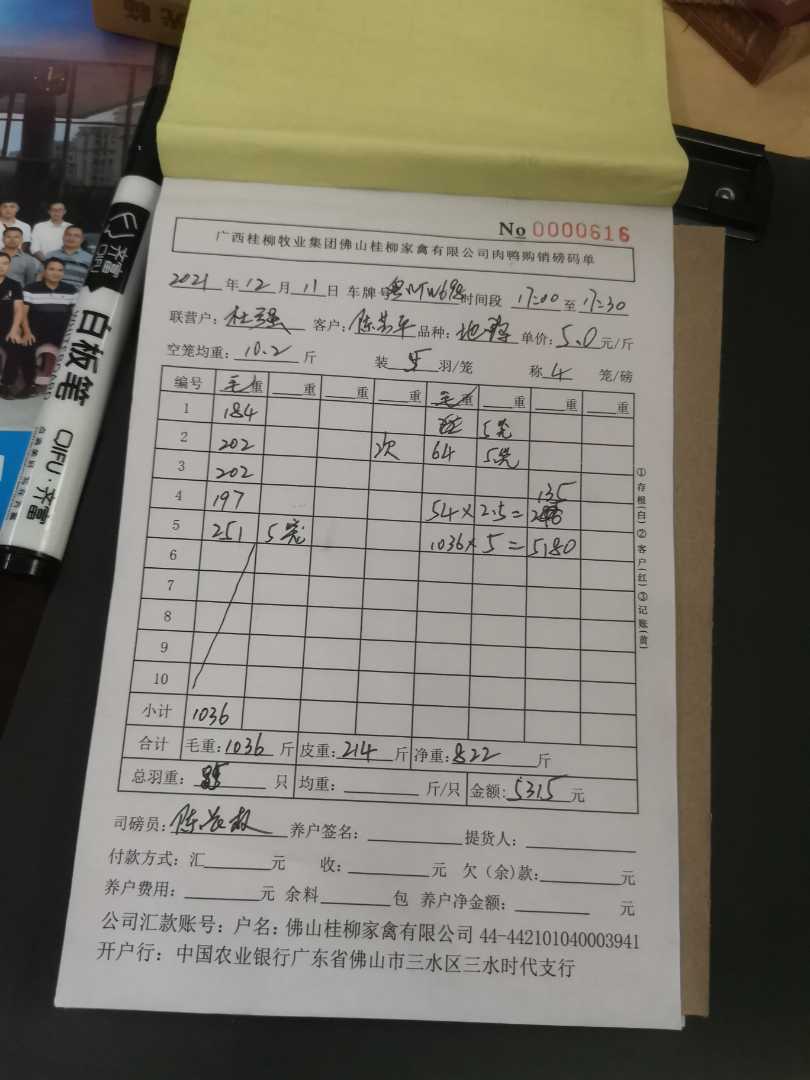 No 0000616
广西桂柳牧业集团佛山桂柳家禽有限公司肉鸭购销磅码单
2021 年 12 月 11 日 车牌号 时间段 17:00 至 17:30
联营户: 杜强 客户: 陈 平 品种: 单价: 5.0 元/斤
空笼均重: 10.2 斤 装 5 羽/笼 称 4 笼/磅
编号 毛重 重 重 重 毛重 重 重 重
1 184 5笼
2 202 次 64 5笼
3 202 135
4 197 54×2.5=
5 251 5笼 1036×5=5180
6
7
8
9
10
小计 1036
合计 毛重: 1036 斤 皮重: 214 斤 净重: 822 斤
总羽重: 只 均重: 斤/只 金额: 5315 元
司磅员: 陈 养户签名: 提货人:
付款方式: 汇 元 收: 元 欠(余)款: 元
养户费用: 元 余料 包 养户净金额: 元
公司汇款账号: 户名: 佛山桂柳家禽有限公司 44-442101040003941
开户行: 中国农业银行广东省佛山市三水区三水时代支行
①存根(白)②客户(红)③记账(黄)
齐富
QIFU
白板笔
QIFU·齐富